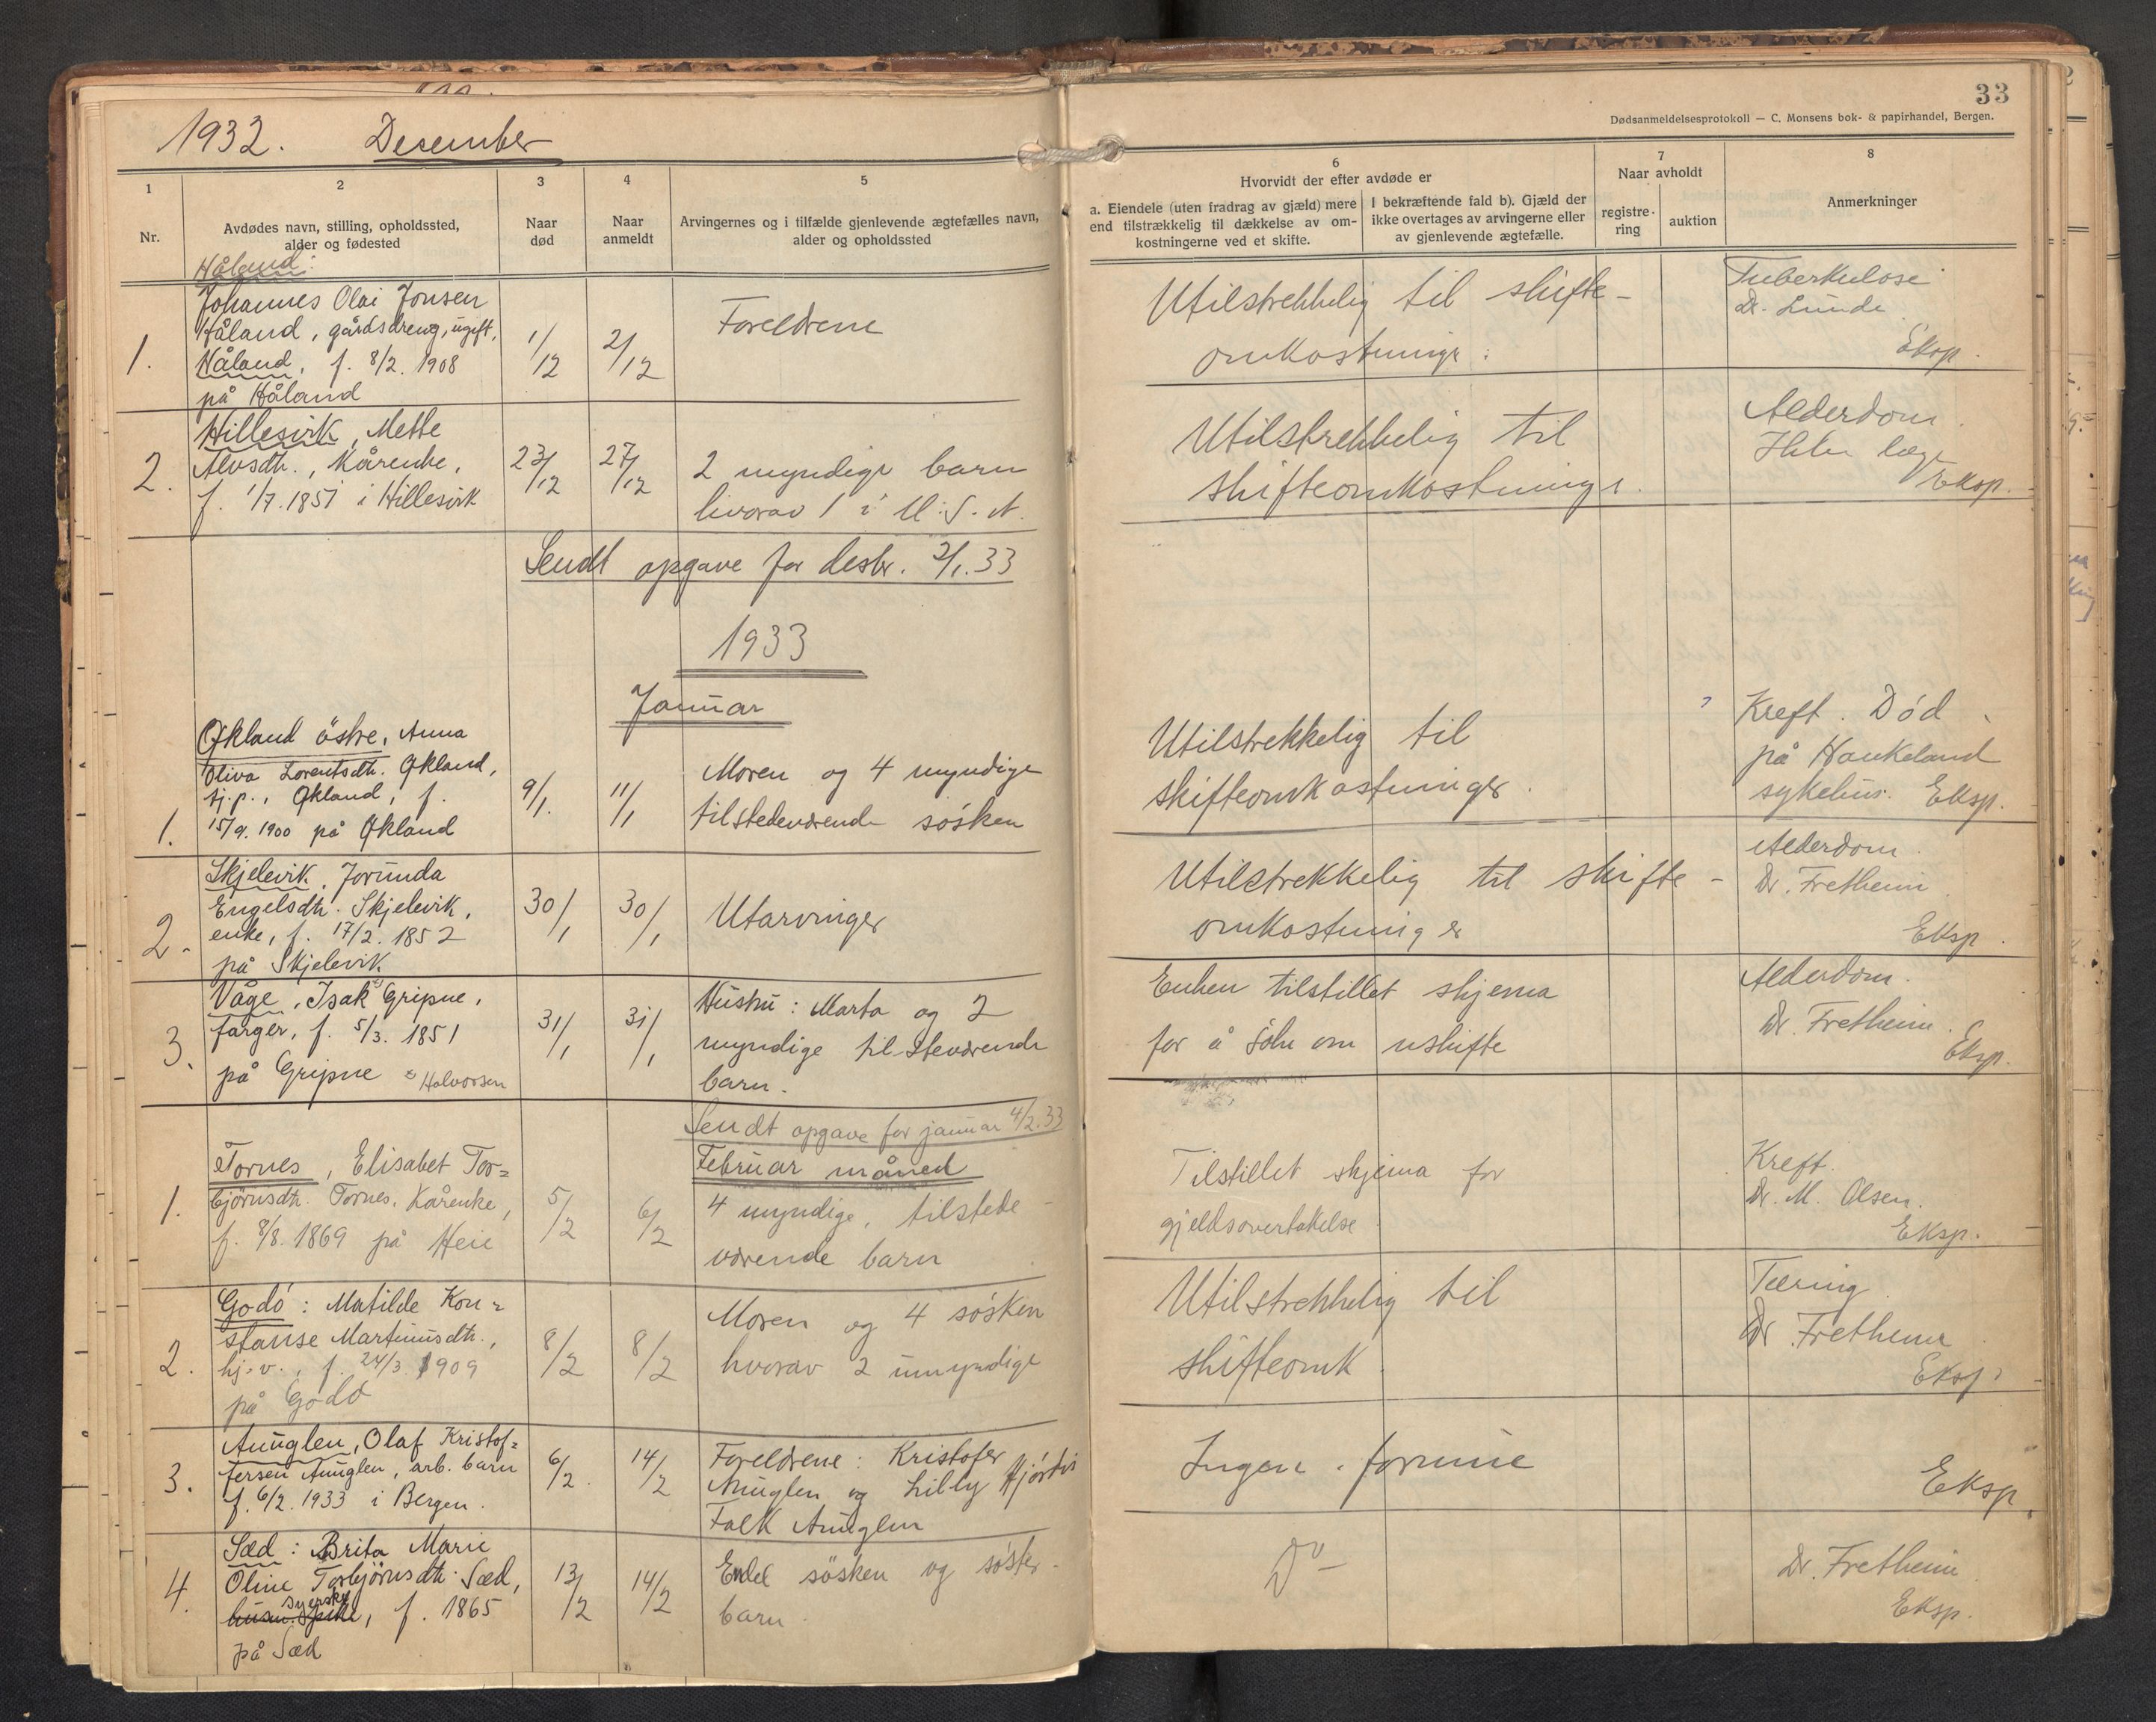 1932. Desember
33
Dødsanmeldelsesprotokoll — C. Monsens bok- & papirhandel, Bergen.
1
2
3
4
5
6
7
8
Nr.
Avdødes navn, stilling, opholdssted,
alder og fødested
Naar
død
Naar
anmeldt
Arvingernes og i tilfælde gjenlevende ægtefælles navn,
alder og opholdssted
Hvorvidt der efter avdøde er
a. Eiendele (uten fradrag av gjæld) mere
end tilstrækkelig til dækkelse av om-
kostningerne ved et skifte.
I bekræftende fald b). Gjæld der
ikke overtages av arvingerne eller
av gjenlevende ægtefælle.
Naar avholdt
registre-
ring
auktion
Anmerkninger
Håland:
1.
Johannes Olai Jonsen
Håland, gårdsdreng, ugift,
Håland, f. 8/2. 1908
på Håland
1/12
2/12
Foreldrene
Utilstrekkelig til skifte-
omkostninger.
Tuberkulose
Dr. Lunde
Eksp.
2.
Hillesvik, Mette
Alvsdtr., Kårenke,
f. 1/7. 1851 i Hillesvik
23/12
27/12
2 myndige barn
hvorav 1 i U.S.A.
Utilstrekkelig til
skifteomkostninger.
Alderdom.
Ikke læge
Eksp.
Sendt opgave for desbr. 2/1. 33
1933
Januar
1.
Økland östre, Anna
Oliva Lorentsdtr. Økland,
tj.p., Økland, f.
15/9. 1900 på Økland
9/1.
11/1
Moren og 4 myndige
tilstedeværende sösken
Utilstrekkelig til
skifteomkostninger.
Kreft. Død
på Haukeland
sykehus. Eksp.
2.
Skjelevik, Jorunda
Engelsdtr. Skjelevik,
enke, f. 17/2. 1852
på Skjelevik
30/1
30/1
Utarvinger
Utilstrekkelig til skifte-
omkostninger
Alderdom.
Dr. Fretheim
Eksp.
3.
Våge, Isak Gripne,
farger, f. 5/3. 1851
på Gripne × Halvorsen
31/1
31/1
Hustru: Marta og 2
myndige til steværende
barn.
Enken tilstillet skjema
for å söke om uskifte
Alderdom.
Dr. Fretheim.
Eksp.
Sendt opgave for januar 4/2. 33
Februar måned
1.
Tornes, Elisabet Tor=
björnsdtr. Tornes, Kårenke,
f. 8/8. 1869 på Heie
5/2
6/2
4 myndige, tilstede-
værende barn
Tilstillet skjema for
gjeldsovertakelse
Kreft.
Dr. M. Olsen.
Eksp.
2.
Godö: Matilde Kon=
stanse Martinusdtr.,
hj.v., f. 24/3. 1909
på Godö
8/2
8/2
Moren og 4 sösken
hvorav 2 umyndige
Utilstrekkelig til
skifteomk.
Tæring
Dr. Fretheim
Eksp.
3.
Anuglen, Olaf Kristof=
fersen Anuglen, arb. barn
f. 6/2. 1933 i Bergen.
6/2.
14/2
Foreldrene: Kristofer
Anuglen og Lilly Hjördis
Falk Anuglen
Ingen formue
Eksp.
4.
Sæd: Brita Marie
Oline Torbjörnsdtr. Sæd,
syerske
f. 1865
på Sæd
13/2
14/2
Endel sösken og söster-
barn.
Do —
Dr. Fretheim
Eksp.